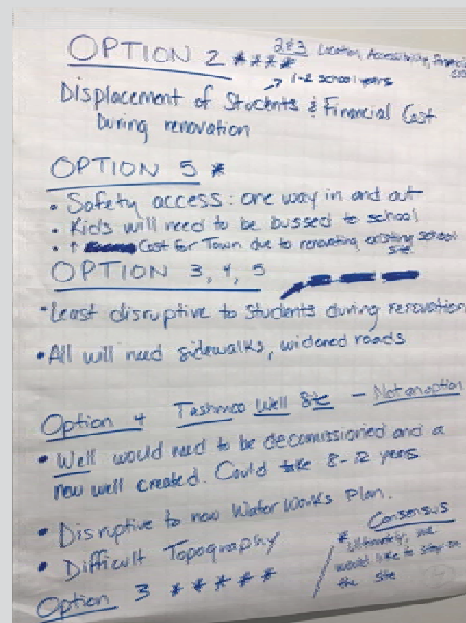 OPTION 2 ****
2&3 Location, Accessibility, Financial
→ 1-2 school years
Displacement of Students & Financial Cost
During renovation
OPTION 5 *
• Safety access: one way in and out
• Kids will need to be bussed to school
• ↑ Cost for Town due to renovating existing school
site.
OPTION 3, 4, 5
• Least disruptive to students during renovation
• All will need sidewalks, widened roads
Option 4 Tashmoo Well Site - Not an option
• Well would need to be decomissioned and a
new well created. Could take 8-12 years
• Disruptive to new Water Works Plan.
• Difficult Topography
Option 3 *****
Consensus
* Ultimately, we
would like to stay on
the site